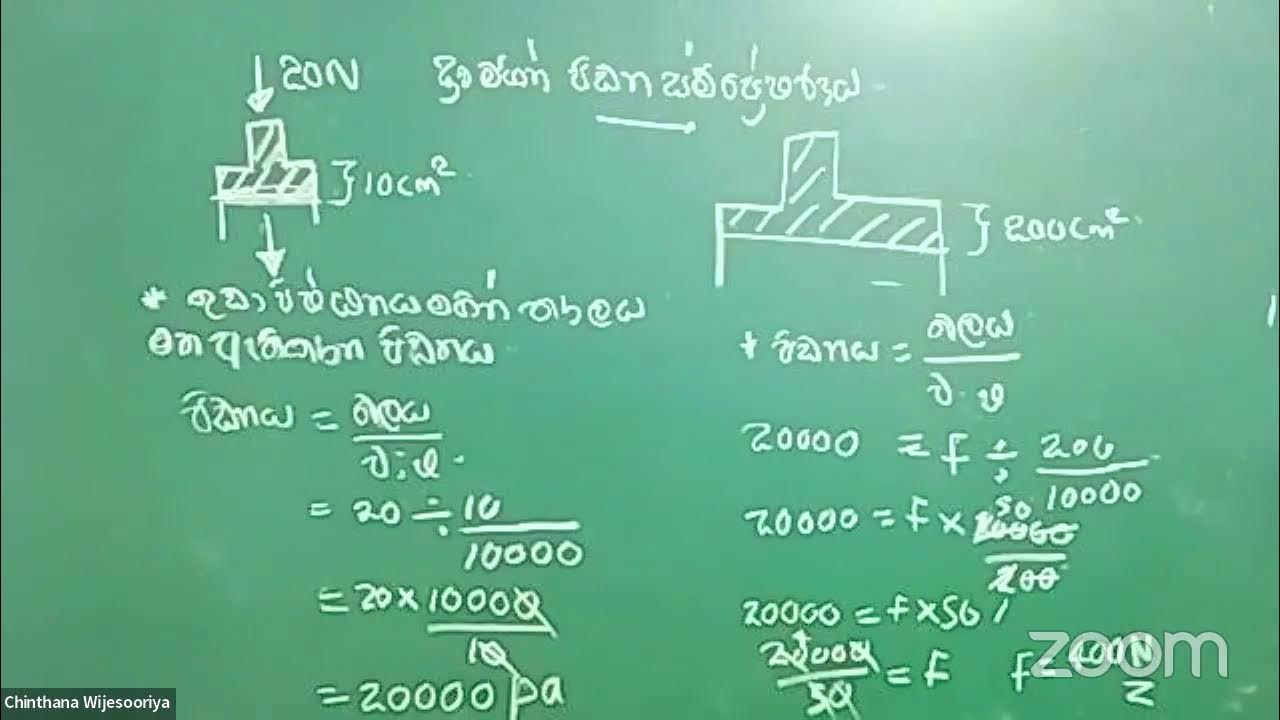 20N
ද්‍රව මගින් පීඩන සම්ප්‍රේෂණය
10cm²
200cm²
* කුඩා පිස්ටනය මගින් තරලය
මත ඇතිකරන පීඩනය
පීඩනය = බලය / ව.ඵ.
= 20 ÷ 10/10000
= 20 × 10000/10
= 20000 Pa
+ පීඩනය = බලය / ව.ඵ
20000 = f ÷ 200/10000
20000 = f × 10000/200 50
20000 = f × 50
20000/50 = f f = 400N
zoom
Chinthana Wijesooriya